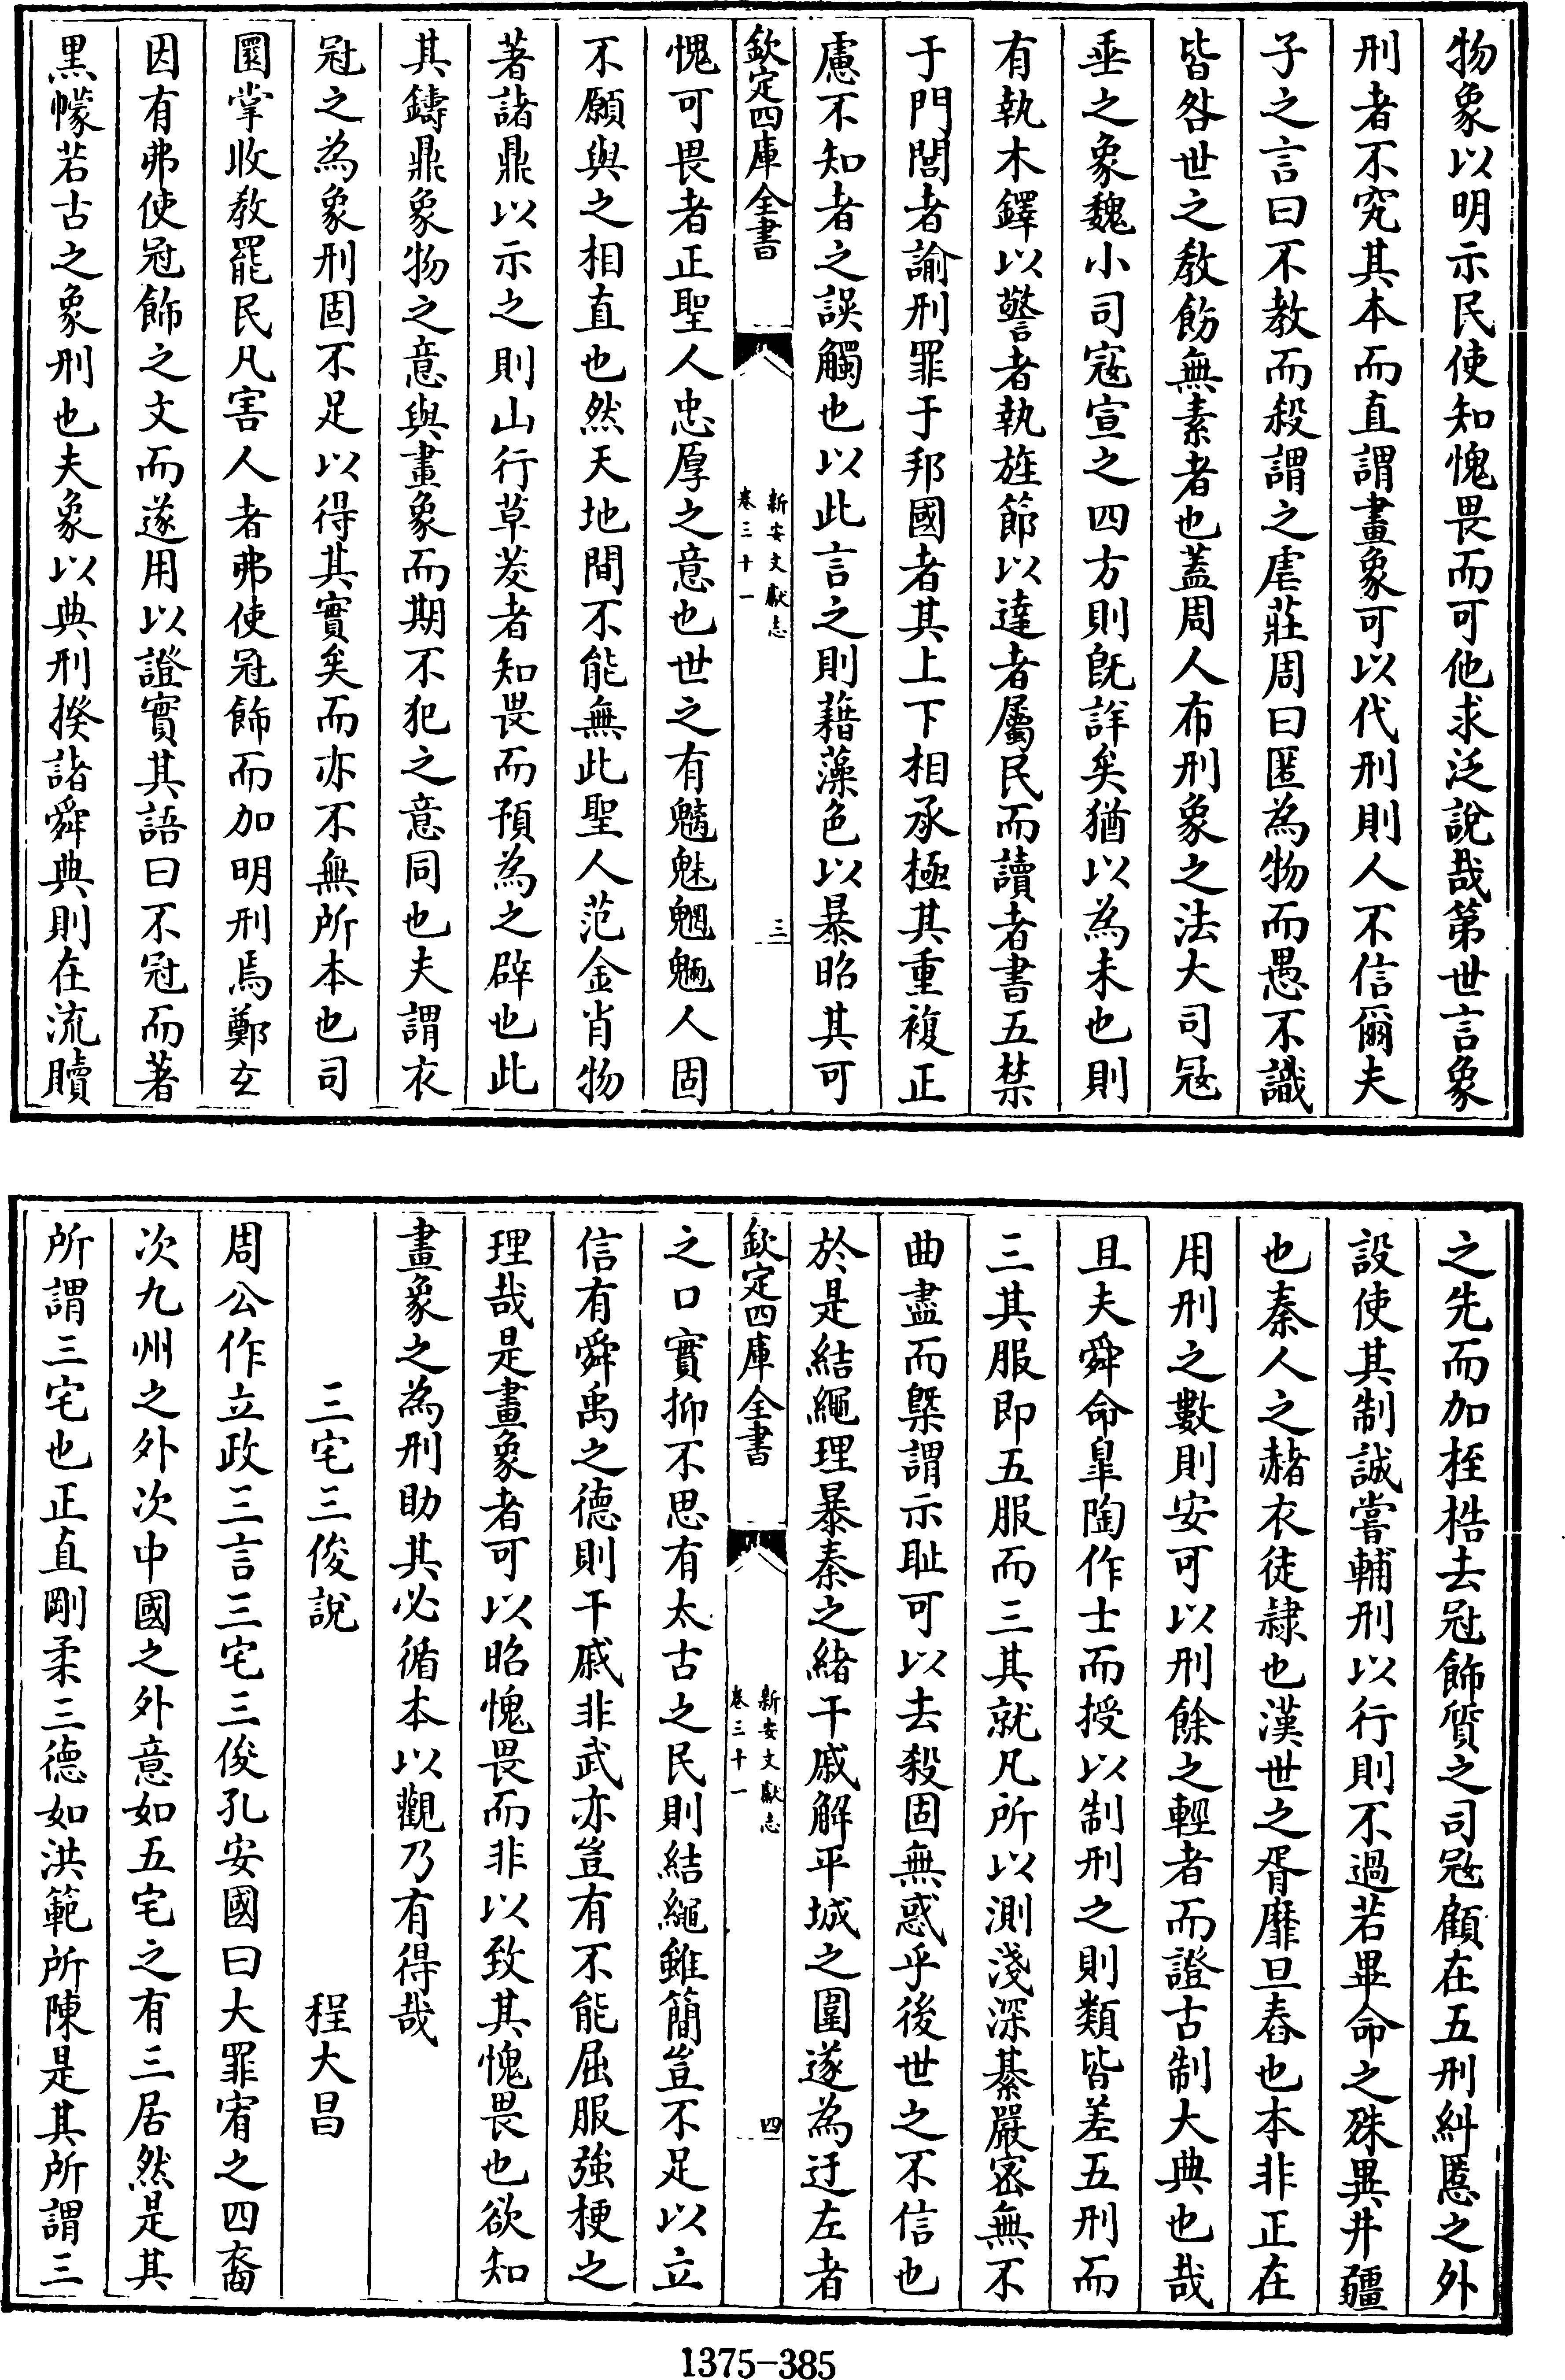 物象以明示民使知愧畏而可他求泛說哉第世言象
刑者不究其本而直謂畫象可以代刑則人不信爾夫
子之言曰不教而殺謂之虐莊周曰匿為物而愚不識
皆咎世之教飭無素者也蓋周人布刑象之法大司寇
垂之象魏小司寇宣之四方則既詳矣猶以為未也則
有執木鐸以警者執旌節以達者屬民而讀者書五禁
于門閭者諭刑罪于邦國者其上下相承極其重複正
慮不知者之誤觸也以此言之則藉藻色以暴昭其可
欽定四庫全書
新安文獻志
卷三十一
三
愧可畏者正聖人忠厚之意也世之有魑魅魍魎人固
不願與之相直也然天地間不能無此聖人范金肖物
著諸鼎以示之則山行草茇者知畏而預為之辟也此
其鑄鼎象物之意與畫象而期不犯之意同也夫謂衣
冠之為象刑固不足以得其實矣而亦不無所本也司
圜掌收教罷民凡害人者弗使冠飾而加明刑焉鄭玄
因有弗使冠飾之文而遂用以證實其語曰不冠而著
黑幪若古之象刑也夫象以典刑揆諸舜典則在流贖
之先而加桎梏去冠飾質之司寇顧在五刑糾慝之外
設使其制誠嘗輔刑以行則不過若畢命之殊異井疆
也秦人之赭衣徒隸也漢世之胥靡旦舂也本非正在
用刑之數則安可以刑餘之輕者而證古制大典也哉
且夫舜命臯陶作士而授以制刑之則類皆差五刑而
三其服即五服而三其就凡所以測淺深綦嚴密無不
曲盡而槩謂示耻可以去殺固無惑乎後世之不信也
於是結繩理暴秦之緒干戚解平城之圍遂為迂左者
欽定四庫全書
新安文獻志
卷三十一
四
之口實抑不思有太古之民則結繩雖簡豈不足以立
信有舜禹之德則干戚非武亦豈有不能屈服強梗之
理哉是畫象者可以昭愧畏而非以致其愧畏也欲知
畫象之為刑助其必循本以觀乃有得哉
三宅三俊說
程大昌
周公作立政三言三宅三俊孔安國曰大罪宥之四裔
次九州之外次中國之外意如五宅之有三居然是其
所謂三宅也正直剛柔三德如洪範所陳是其所謂三
1375-385